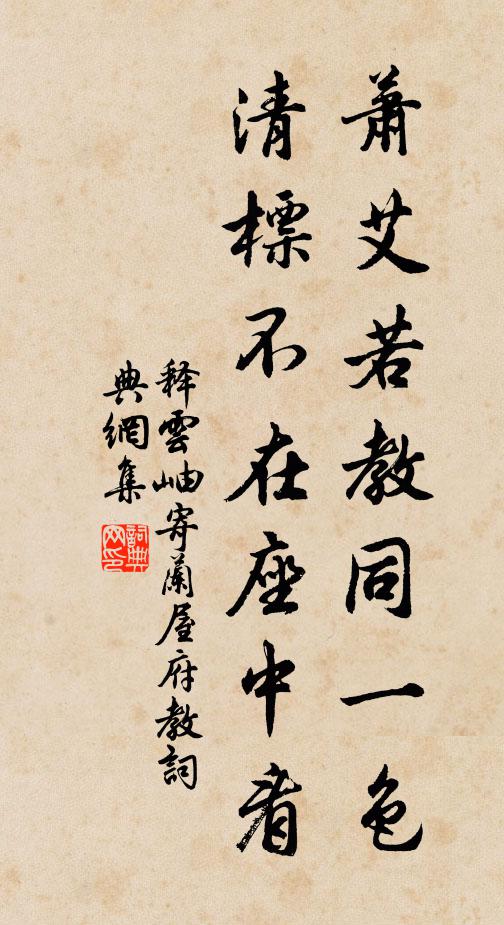 蕭艾若教同一色
清標不在座中看
释雲岫寄蘭屋府教詞
典網集
詞典
网印